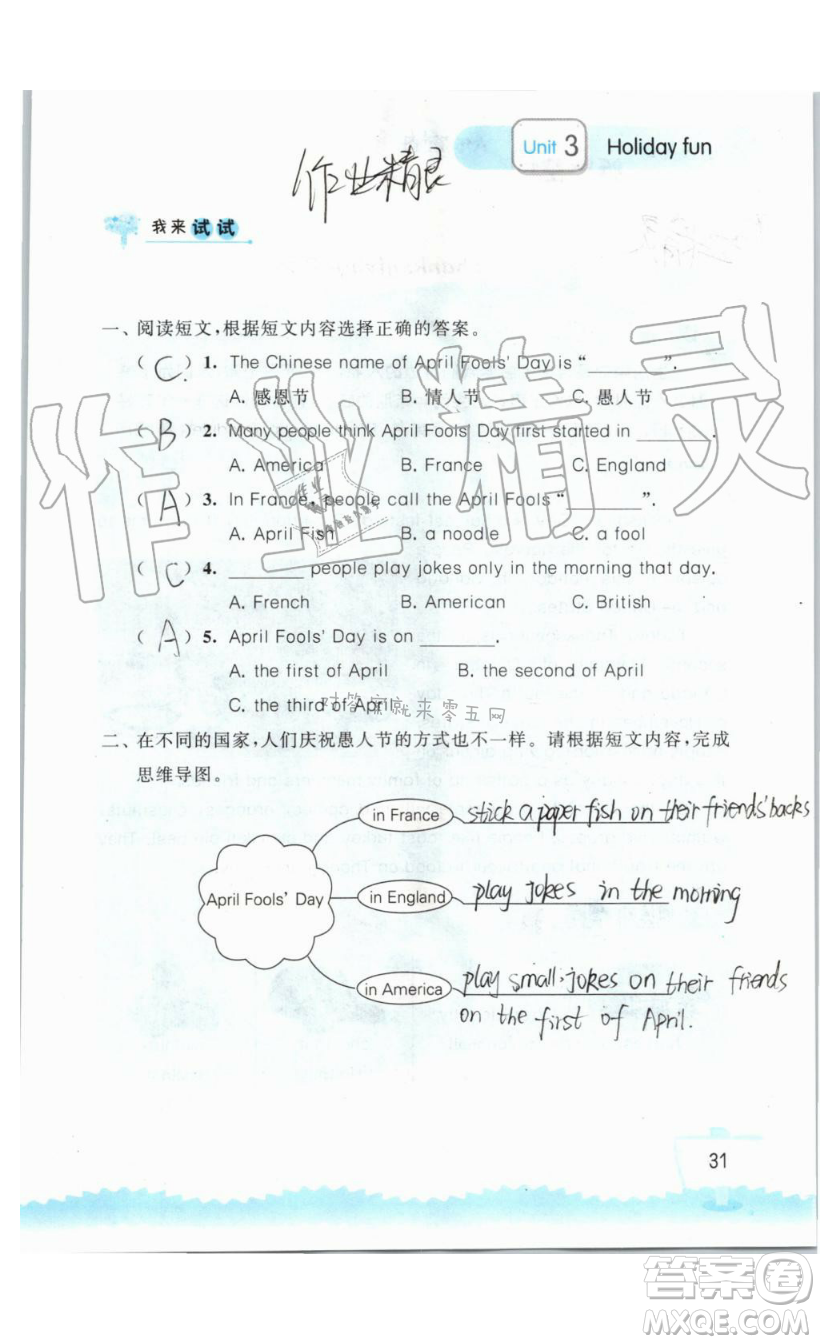 Unit 3 Holiday fun
作业精灵
我来试试
一、阅读短文,根据短文内容选择正确的答案。
( C ) 1. The Chinese name of April Fools' Day is "________".
A. 感恩节 B. 情人节 C. 愚人节
( B ) 2. Many people think April Fools' Day first started in ________.
A. America B. France C. England
( A ) 3. In France, people call the April Fools "________".
A. April Fish B. a noodle C. a fool
( C ) 4. ________ people play jokes only in the morning that day.
A. French B. American C. British
( A ) 5. April Fools' Day is on ________.
A. the first of April B. the second of April
C. the third of April
对答案就来零五网
二、在不同的国家,人们庆祝愚人节的方式也不一样。请根据短文内容,完成
思维导图。
in France stick a paper fish on their friends' backs
April Fools' Day in England play jokes in the morning
in America play small jokes on their friends
on the first of April.
31
作业精灵
答案卷
MXQE.COM